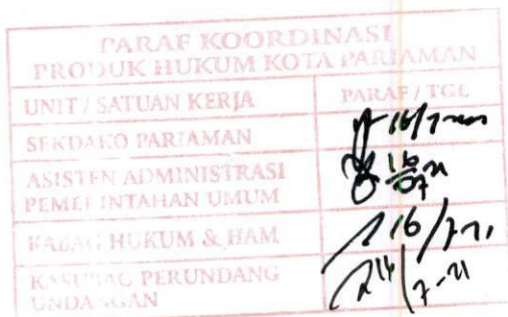 PARAF KOORDINASI
PRODUK HUKUM KOTA PARIAMAN
UNIT / SATUAN KERJA PARAF / TGL
SEKDAKO PARIAMAN 16/7
ASISTEN ADMINISTRASI
PEMERINTAHAN UMUM 16/07
KABAG HUKUM & HAM 16/7
KASUBAG PERUNDANG
UNDANGAN 14/7-21